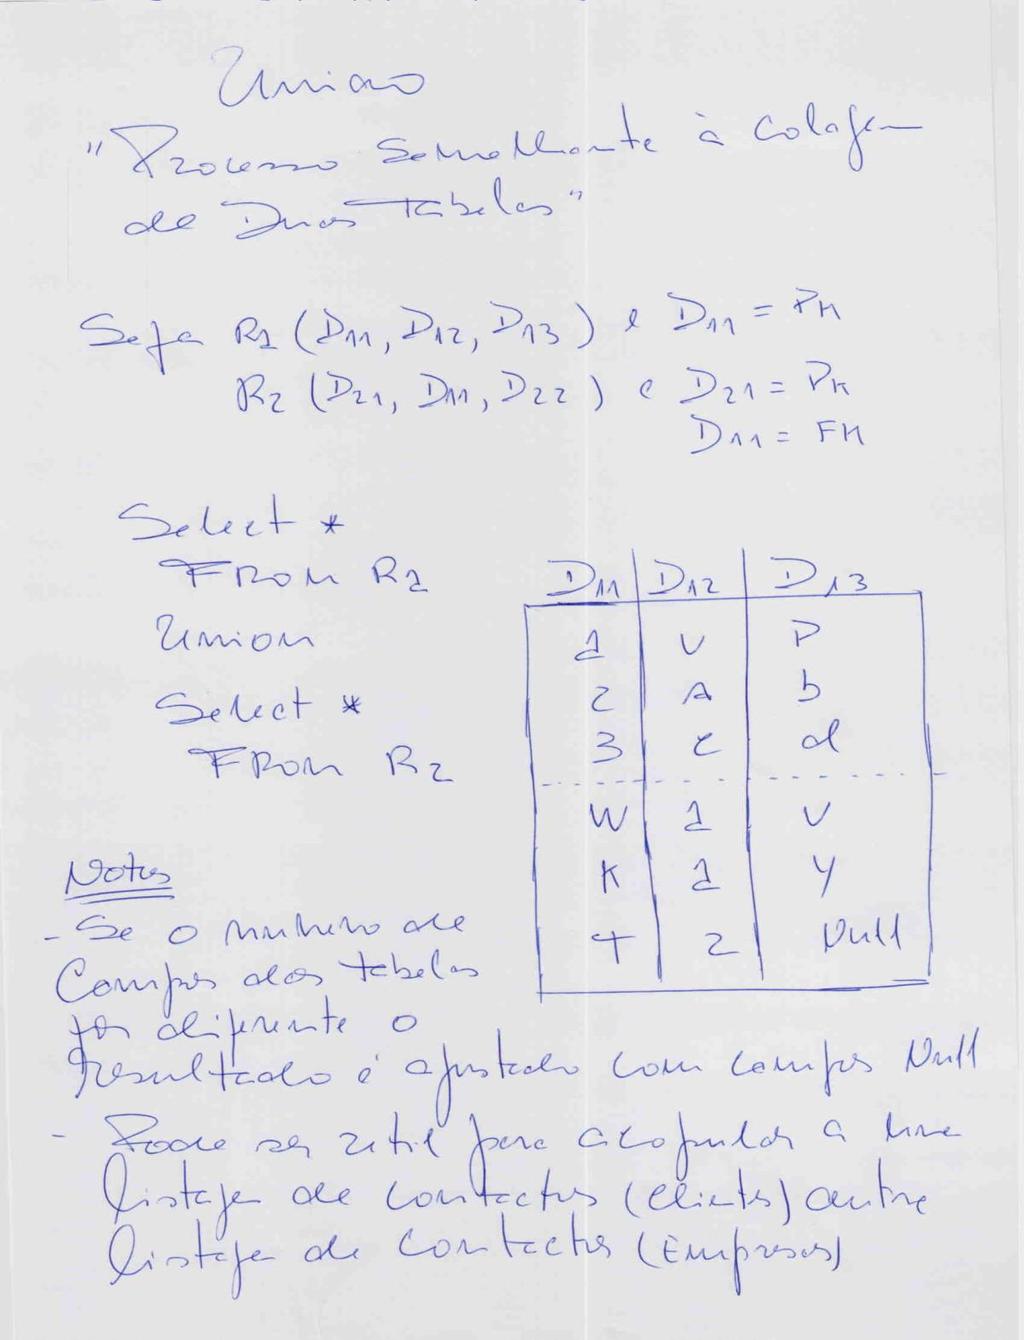 União
"Processo Semelhante à Colagem
de Duas Tabelas"
Seja R1 (D11, D12, D13) e D11 = PK
R2 (D21, D11, D22) e D21 = PK
D11 = FK
Select *
FROM R1
Union
Select *
FROM R2
D11 D12 D13
1 V P
2 A b
3 C d
W 1 V
K 1 Y
T 2 Null
Notas
- Se o numero de
Campos das tabelas
for diferente o
resultado é ajustado com campos Null
- Pode ser util para acopular a uma
listagem de contactos (Clientes) outra
listagem de contactos (Empresas)